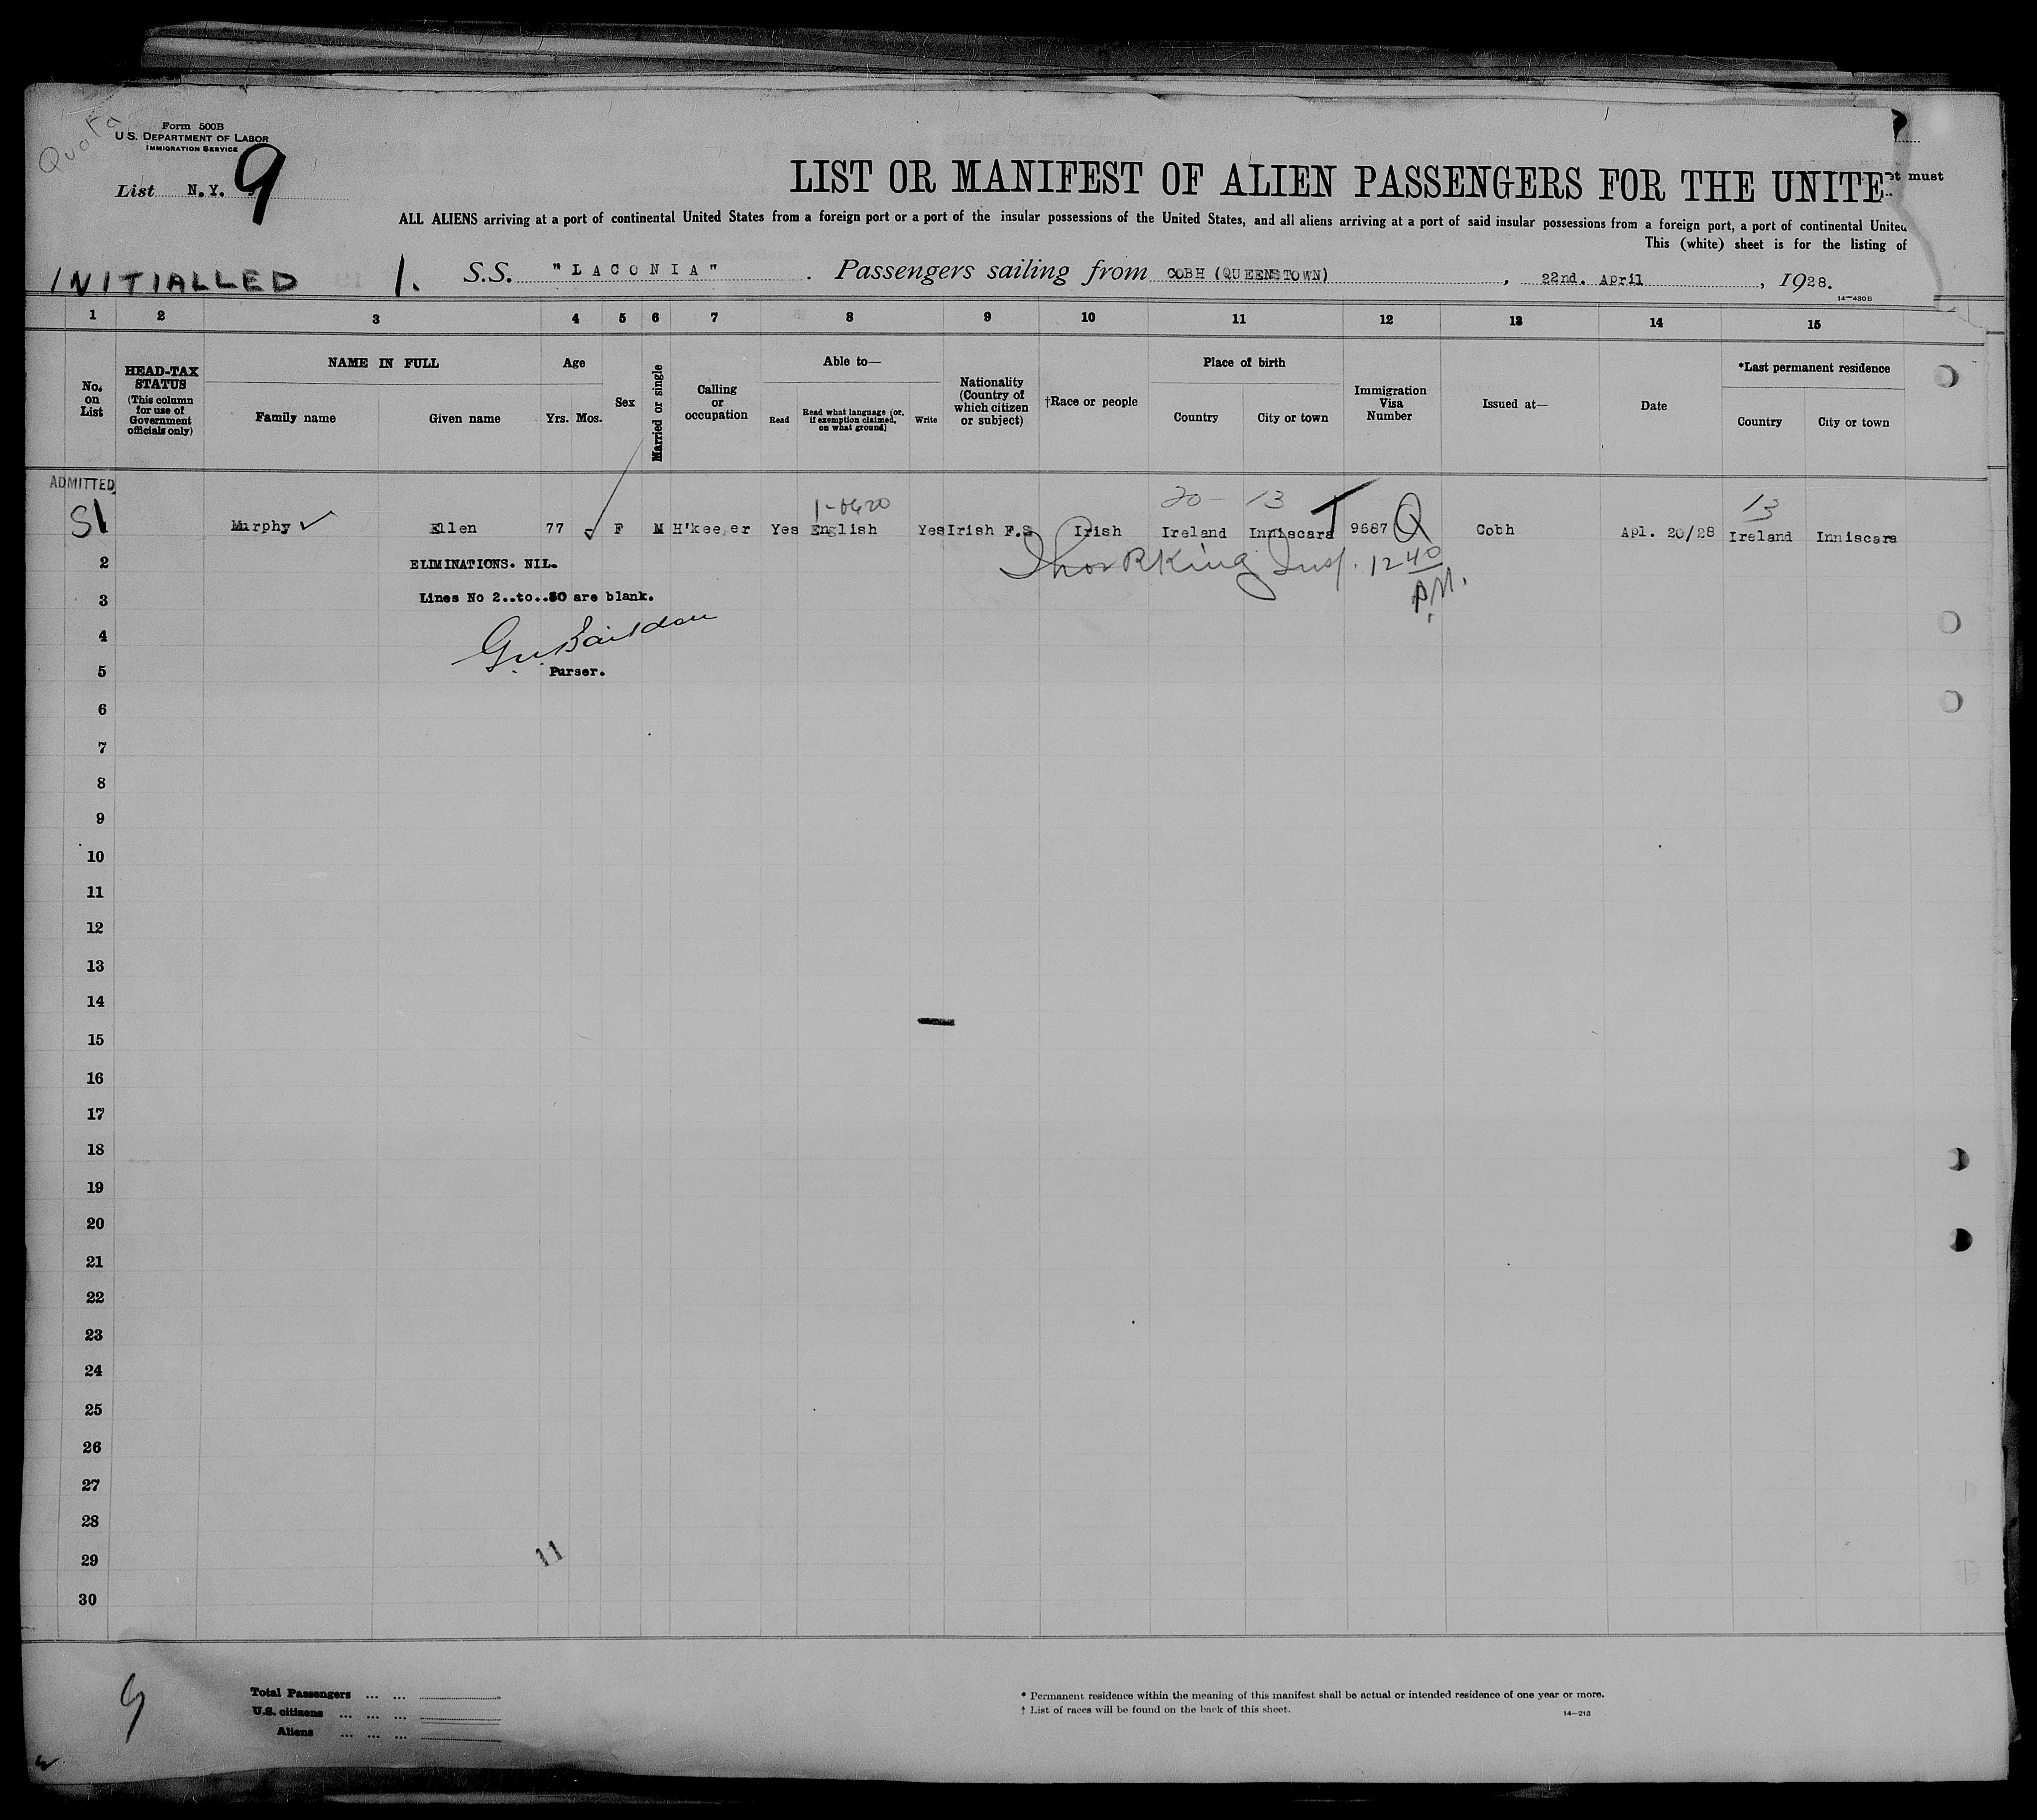 Quota
Form 500B
U.S. DEPARTMENT OF LABOR
IMMIGRATION SERVICE
List N.Y. 9
LIST OR MANIFEST OF ALIEN PASSENGERS FOR THE UNITE
et must
ALL ALIENS arriving at a port of continental United States from a foreign port or a port of the insular possessions of the United States, and all aliens arriving at a port of said insular possessions from a foreign port, a port of continental United
This (white) sheet is for the listing of
INITIALLED 1. S.S. "LACONIA" . Passengers sailing from COBH (QUEENSTOWN) , 22nd. April , 1928.
14-430B
1 2 3 4 5 6 7 8 9 10 11 12 13 14 15
No. on List
HEAD-TAX STATUS (This column for use of Government officials only)
NAME IN FULL
Family name Given name
Age
Yrs. Mos.
Sex
Married or single
Calling or occupation
Able to—
Read Read what language (or, if exemption claimed, on what ground) Write
Nationality (Country of which citizen or subject)
†Race or people
Place of birth
Country City or town
Immigration Visa Number
Issued at—
Date
*Last permanent residence
Country City or town
ADMITTED
20- 13 13
S1 Murphy Ellen 77 F M H'kee er Yes English Yes Irish F.S Irish Ireland Inniscara 9687 Q Cobh Apl. 20/28 Ireland Inniscara
2 ELIMINATIONS. NIL.
Thos R King Insp. 12 40 P.M.
3 Lines No 2..to..30 are blank.
4
5 Purser.
6
7
8
9
10
11
12
13
14
15
16
17
18
19
20
21
22
23
24
25
26
27
28
29
11
30
9
Total Passengers ... ...
U.S. citizens ... ... ...
Aliens ... ... ...
* Permanent residence within the meaning of this manifest shall be actual or intended residence of one year or more.
† List of races will be found on the back of this sheet.
14-213